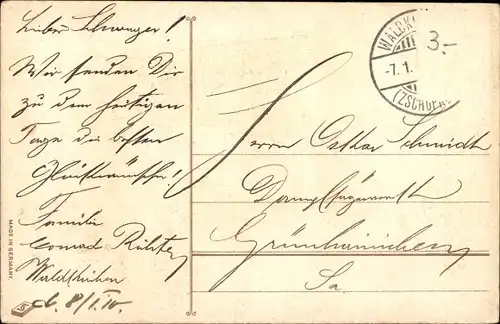 Lieber Schwager!
Wir senden Dir
zu dem heutigen
Tage die besten
Glückwünsche!
Familie
Conrad Richter,
Waldkirchen
d. 8/1.10.
MADE IN GERMANY.
WALDK
-7.1.
(ZSCHOPA
3.-
Herrn Oskar Schmidt
Dampfsägewerk
Grünhainichen
Sa.